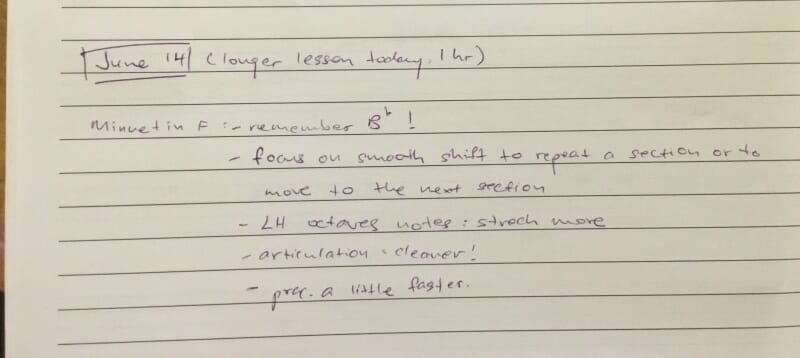 June 14 (longer lesson today, 1 hr)
Minuet in F :- remember B♭ !
- focus on smooth shift to repeat a section or to
move to the next section
- LH octaves notes : strech more
- articulation : cleaner!
- prac. a little faster.